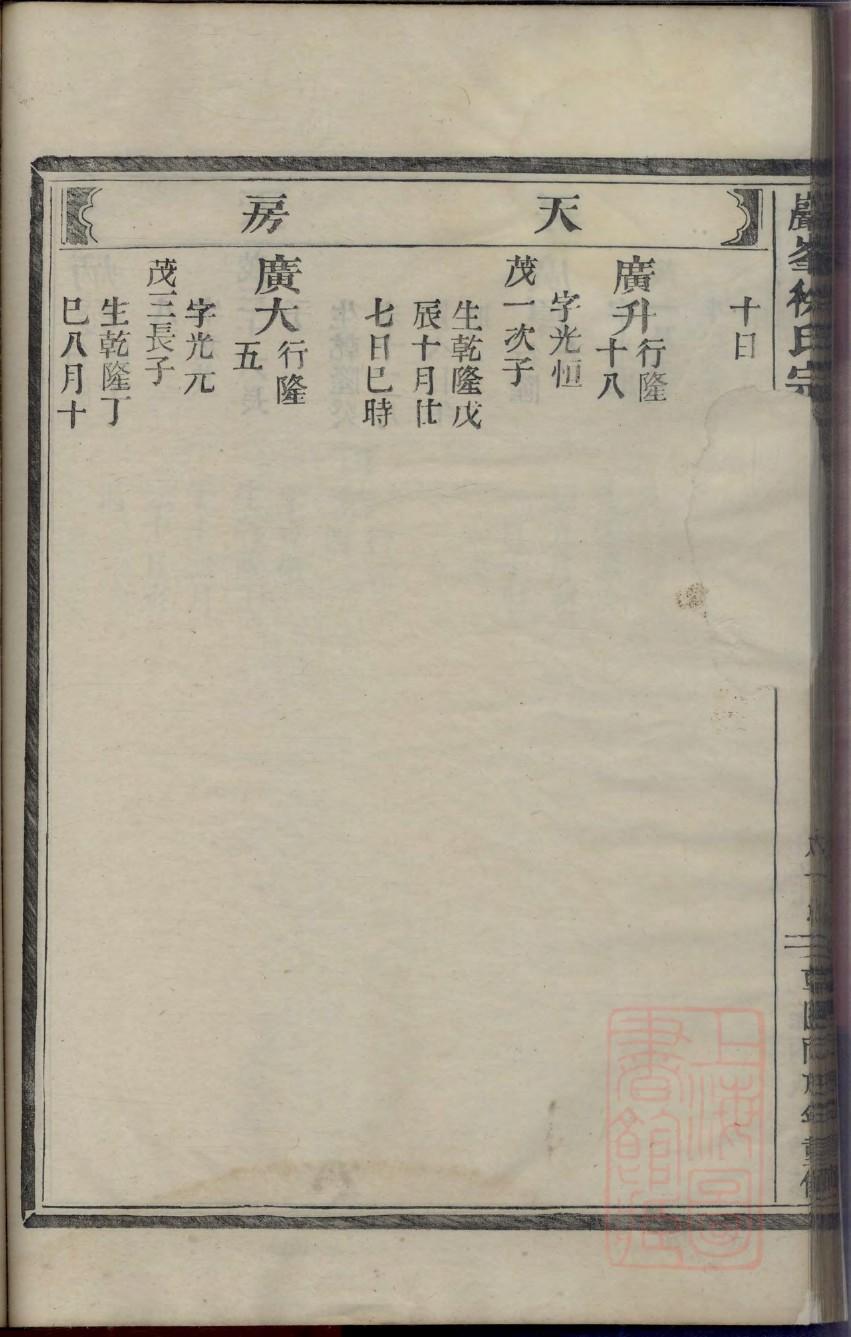 巖峯徐氏宗
天房
十日
廣升行隆
十八
字光恒
茂一次子
生乾隆戊
辰十月廿
七日巳時
廣大行隆
五
字光元
茂三長子
生乾隆丁
巳八月十
上海圖
書館藏